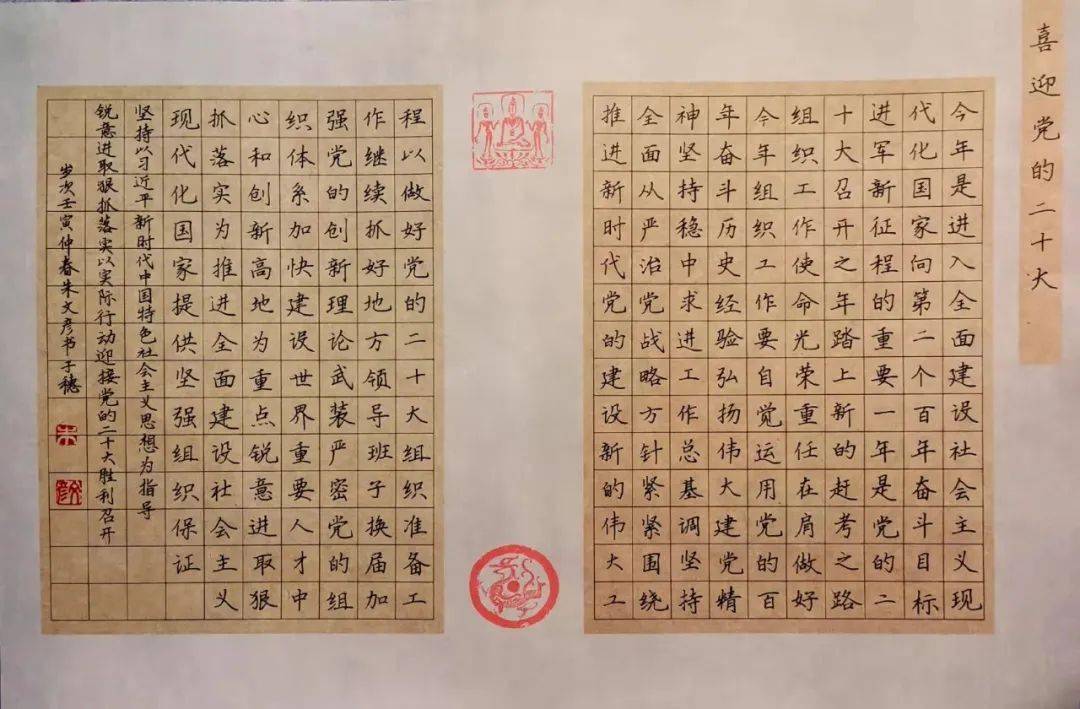 喜迎党的二十大
今年是进入全面建设社会主义现
代化国家向第二个百年奋斗目标
进军新征程的重要一年是党的二
十大召开之年踏上新的赶考之路
组织工作使命光荣重任在肩做好
今年组织工作要自觉运用党的百
年奋斗历史经验弘扬伟大建党精
神坚持稳中求进工作总基调坚持
全面从严治党战略方针紧紧围绕
推进新时代党的建设新的伟大工
程以做好党的二十大组织准备工
作继续抓好地方领导班子换届加
强党的创新理论武装严密党的组
织体系加快建设世界重要人才中
心和创新高地为重点锐意进取狠
抓落实为推进全面建设社会主义
现代化国家提供坚强组织保证
坚持以习近平新时代中国特色社会主义思想为指导
锐意进取狠抓落实以实际行动迎接党的二十大胜利召开
岁次壬寅仲春朱文彦书于穗
朱